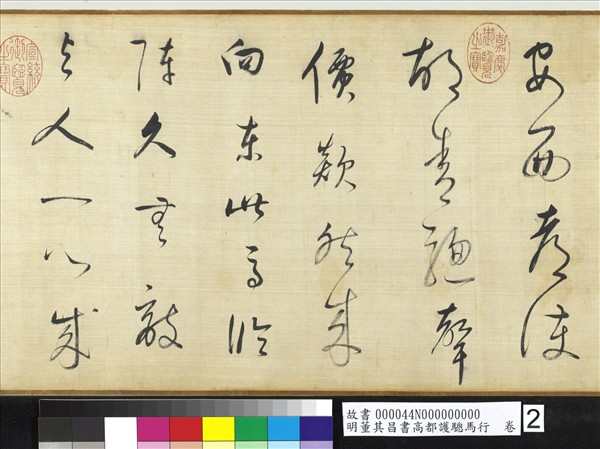 安西都護
胡青驄聲
價欻然來
向東此馬臨
陣久無敵
與人一心成
嘉慶御覽之寶
宣統御覽之寶
故書 000044N000000000
明董其昌書高都護驄馬行 卷
2